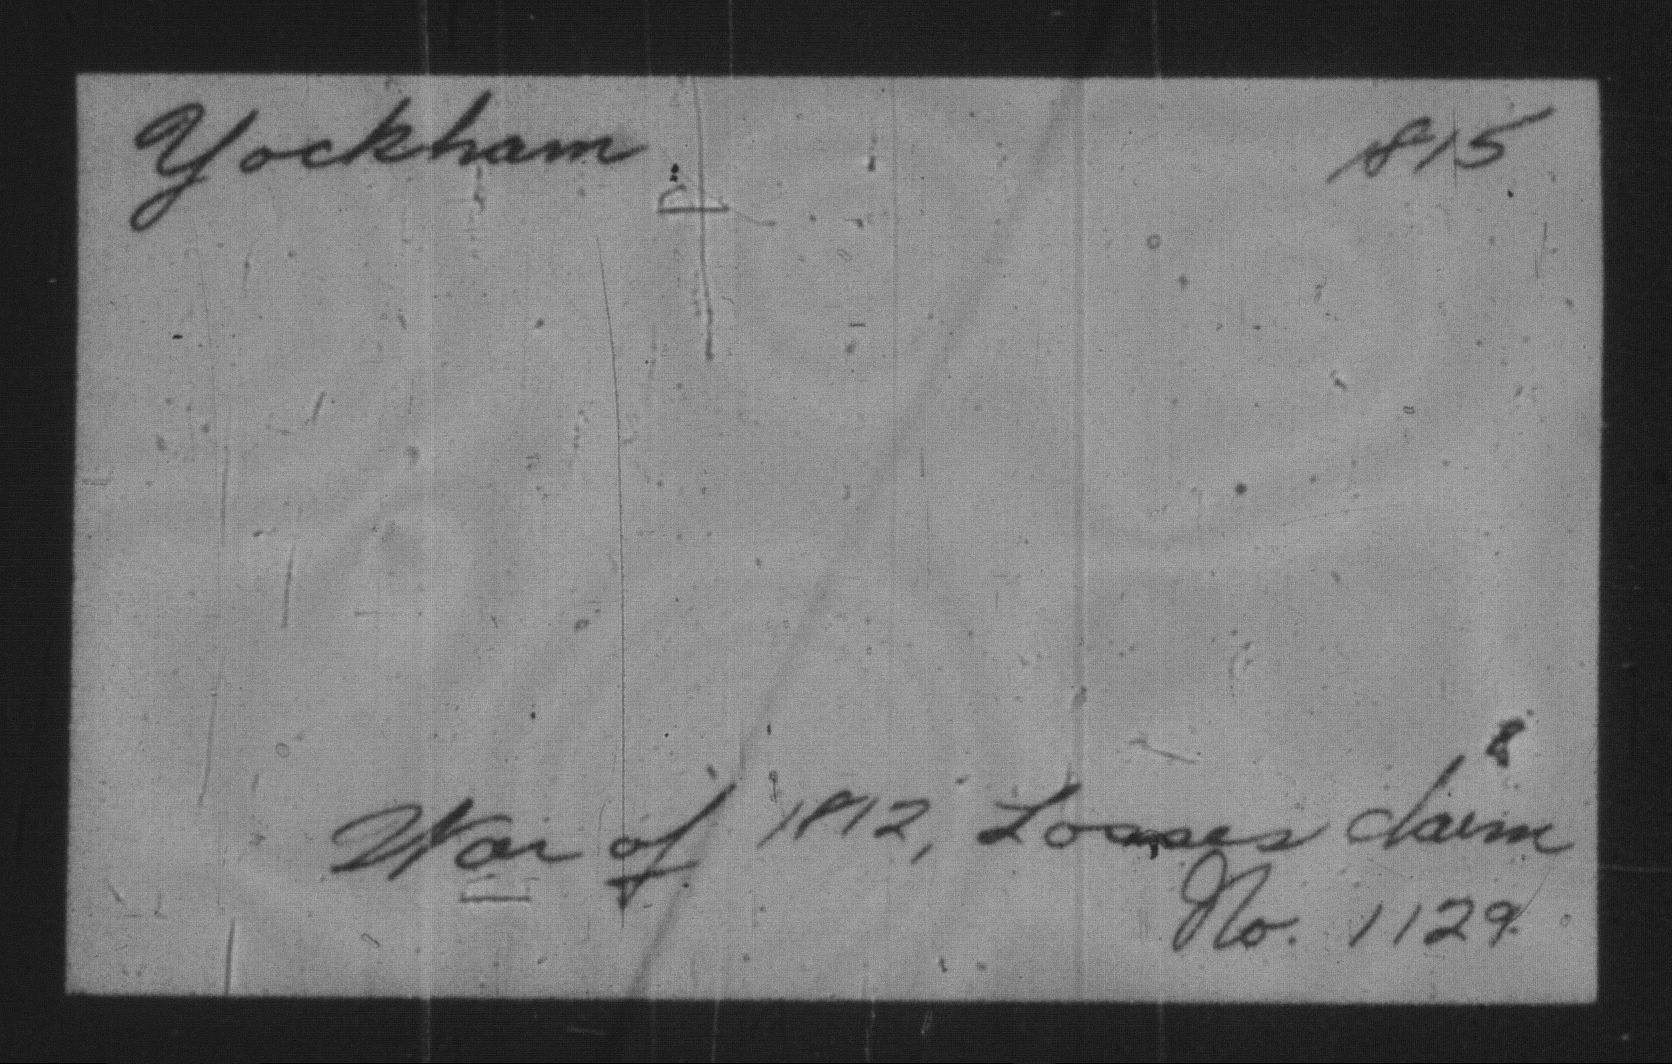 Yockham 1815
War of 1812, Losses claim
No. 1129.